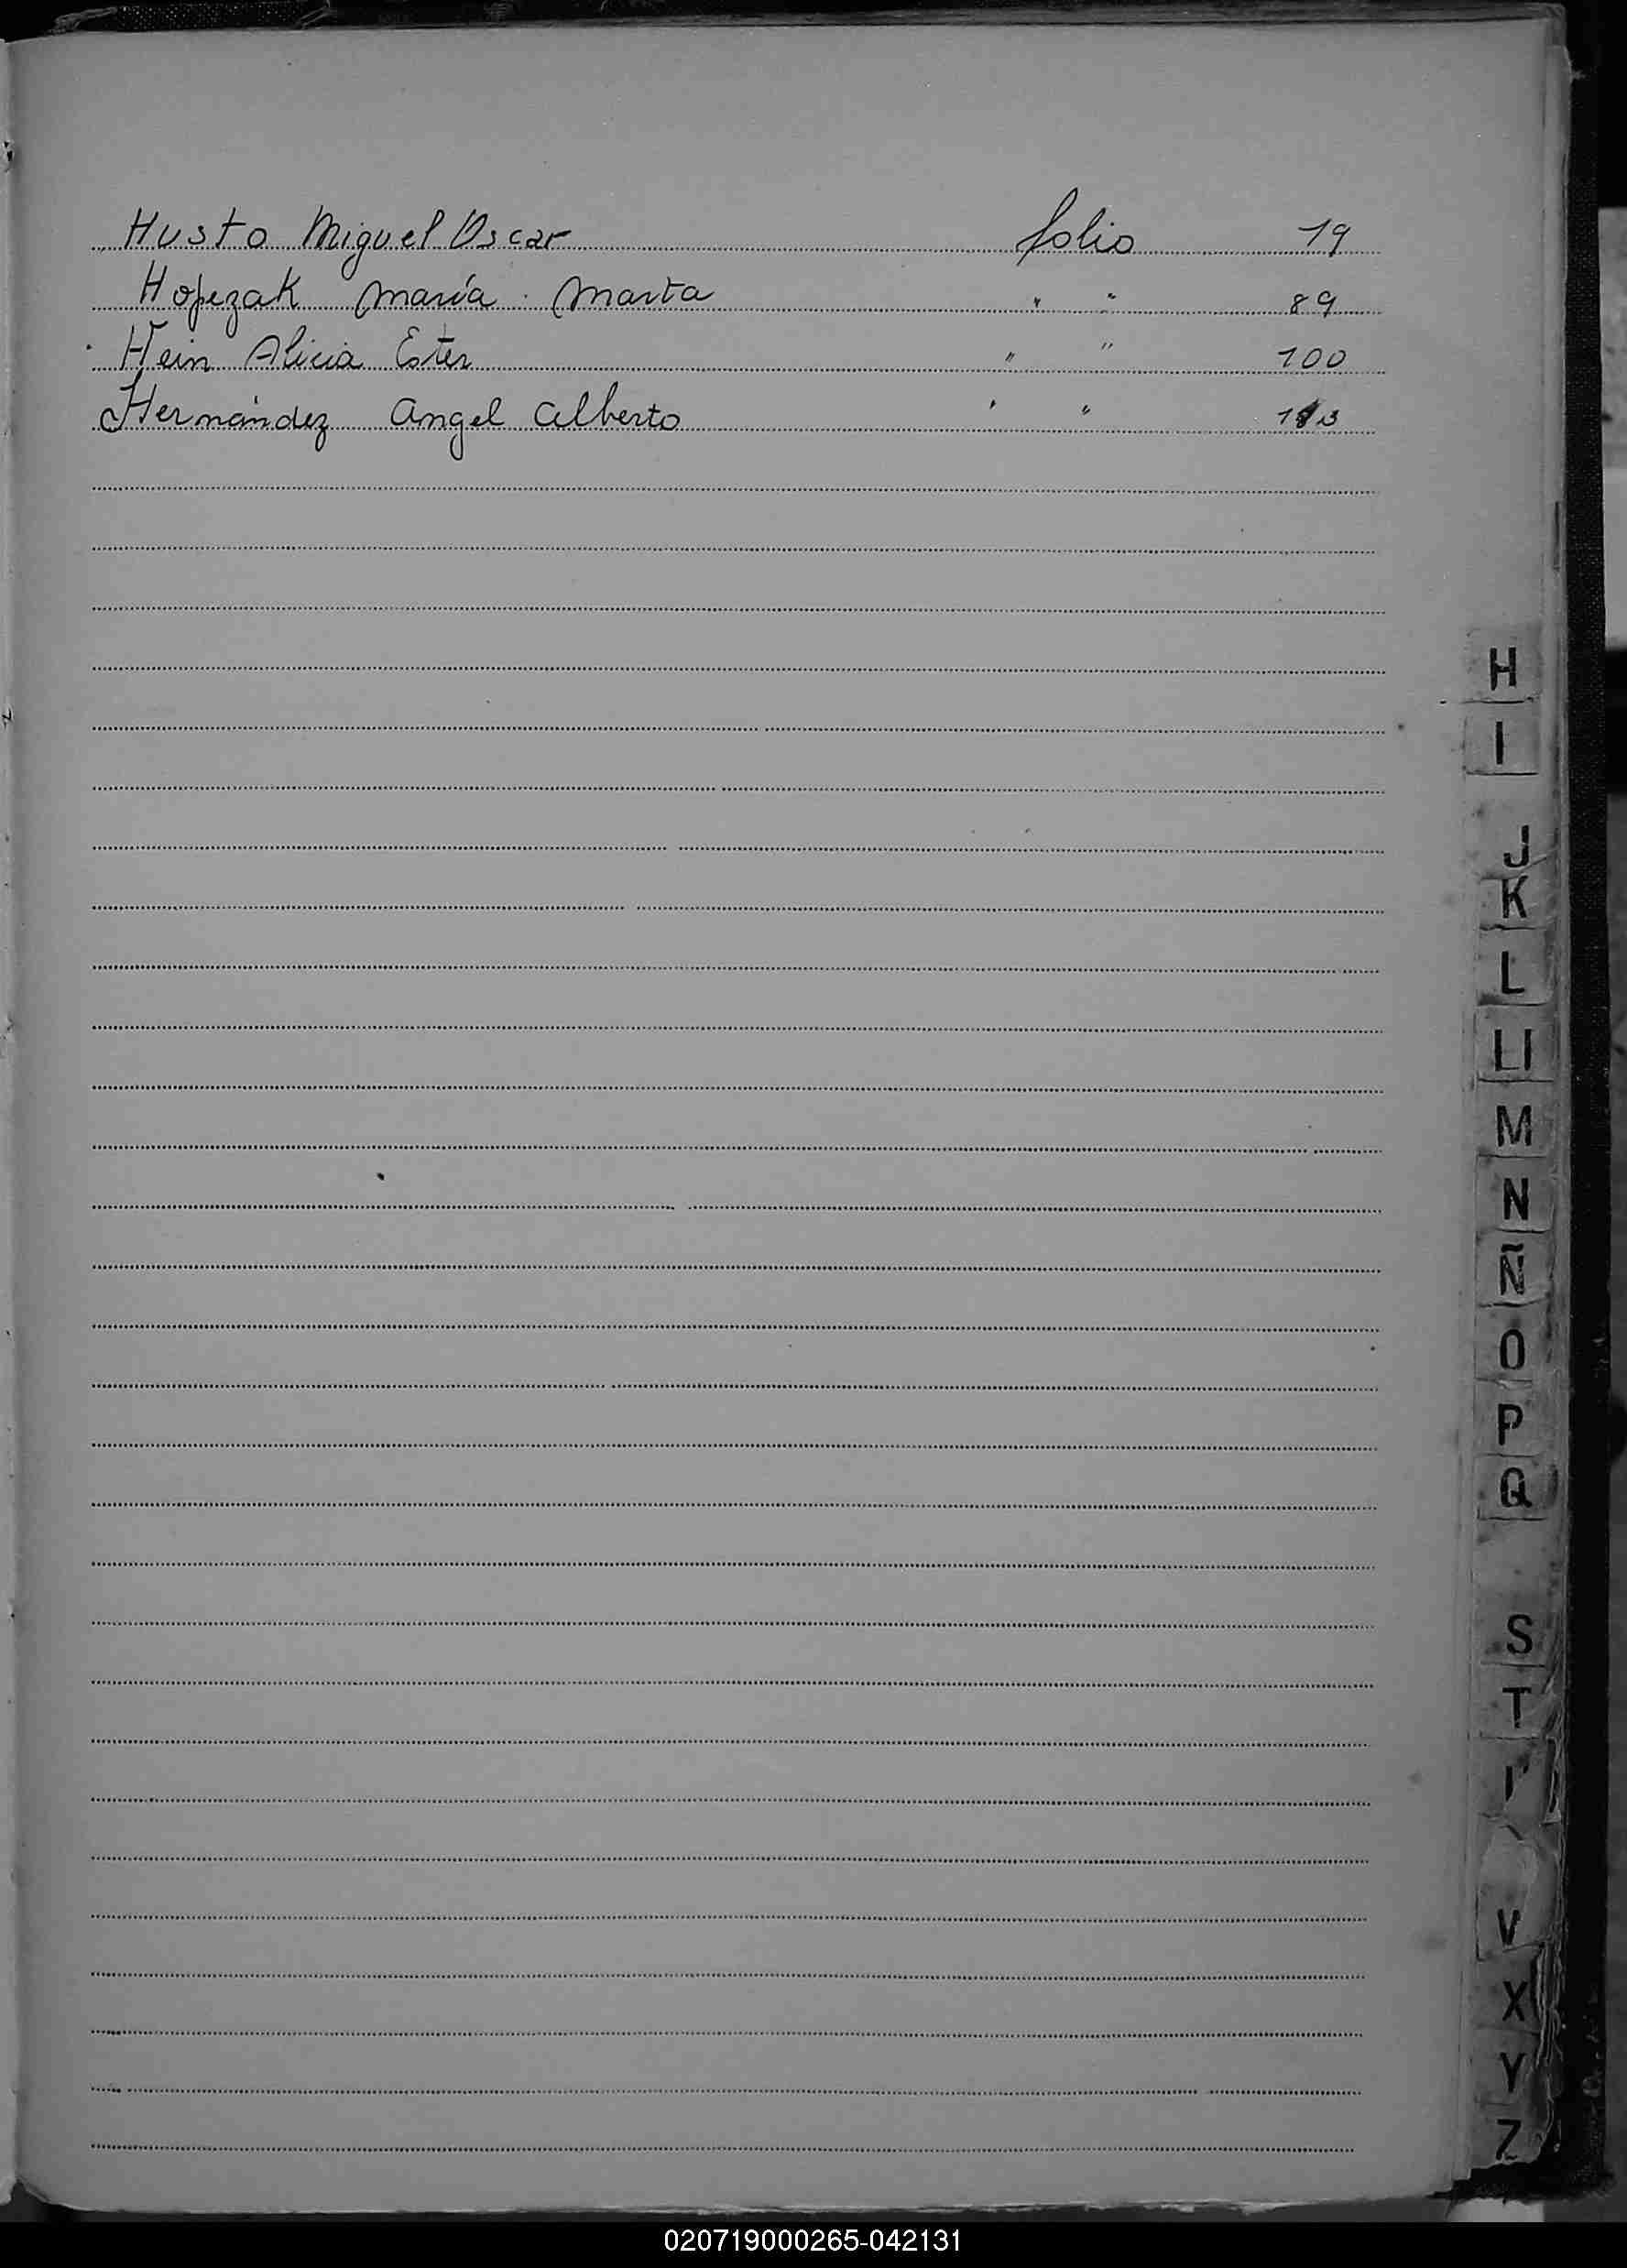 Husto Miguel Oscar folio 19
Hopezak María Marta " " 89
Hein Alicia Ester " " 100
Hernández Angel Alberto " "
H
I
J
K
L
Ll
M
N
Ñ
O
P
Q
S
T
V
X
Y
Z
020719000265-042131